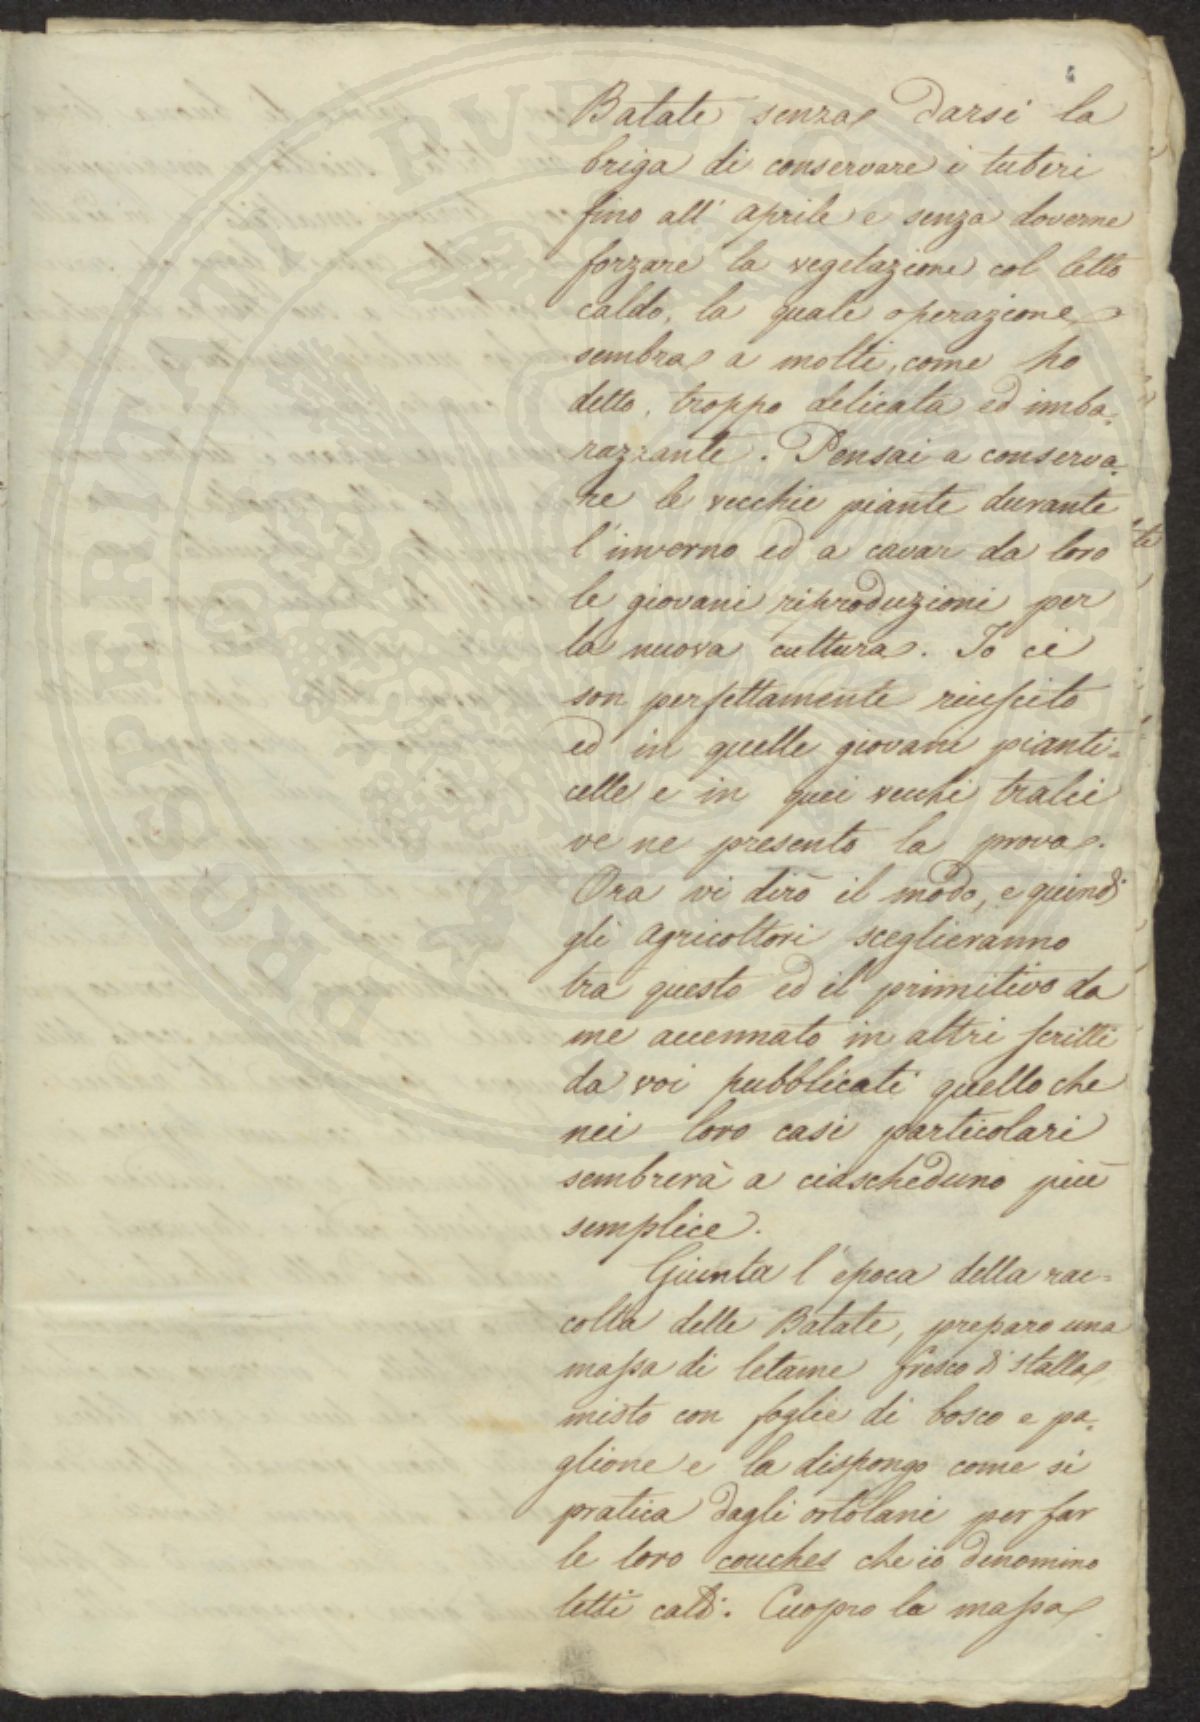 Batate senza darsi la
briga di conservare i tuberi
fino all' aprile e senza doverne
forzare la vegetazione col letto
caldo, la quale operazione
sembra a molti, come ho
detto, troppo delicata ed imba=
razzante. Pensai a conserva=
re le vecchie piante durante
l'inverno ed a cavar da loro
le giovani riproduzioni per
la nuova cultura. Io ci
son perfettamente riuscito
ed in quelle giovani pianti=
celle e in quei vecchi tralci
ve ne presento la prova.
Ora vi dirò il modo, e quindi
gli agricoltori sceglieranno
tra questo ed il primitivo da
me accennato in altri scritti
da voi pubblicati quello che
nei loro casi particolari
sembrerà a ciascheduno più
semplice.
Giunta l'epoca della rac=
colta delle Batate, preparo una
massa di letame fresco di stalla,
misto con foglie di bosco e pa=
glione e la dispongo come si
pratica dagli ortolani per far
le loro couches che io denomino
letti caldi. Cuopro la massa
POSPERITATI PUBLICAE